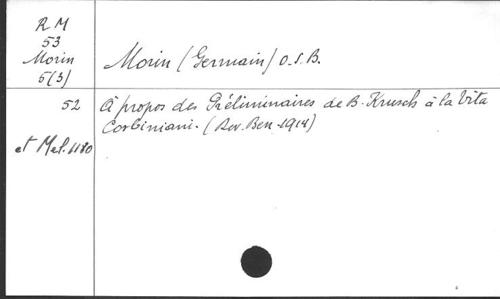 R M
53
Morin
5(3)
Morin (Germain) O.S.B.
52
A propos des Préliminaires de B. Krusch à la Vita
Corbiniani. (Rev. Ben. 1914)
et Mel. 1180